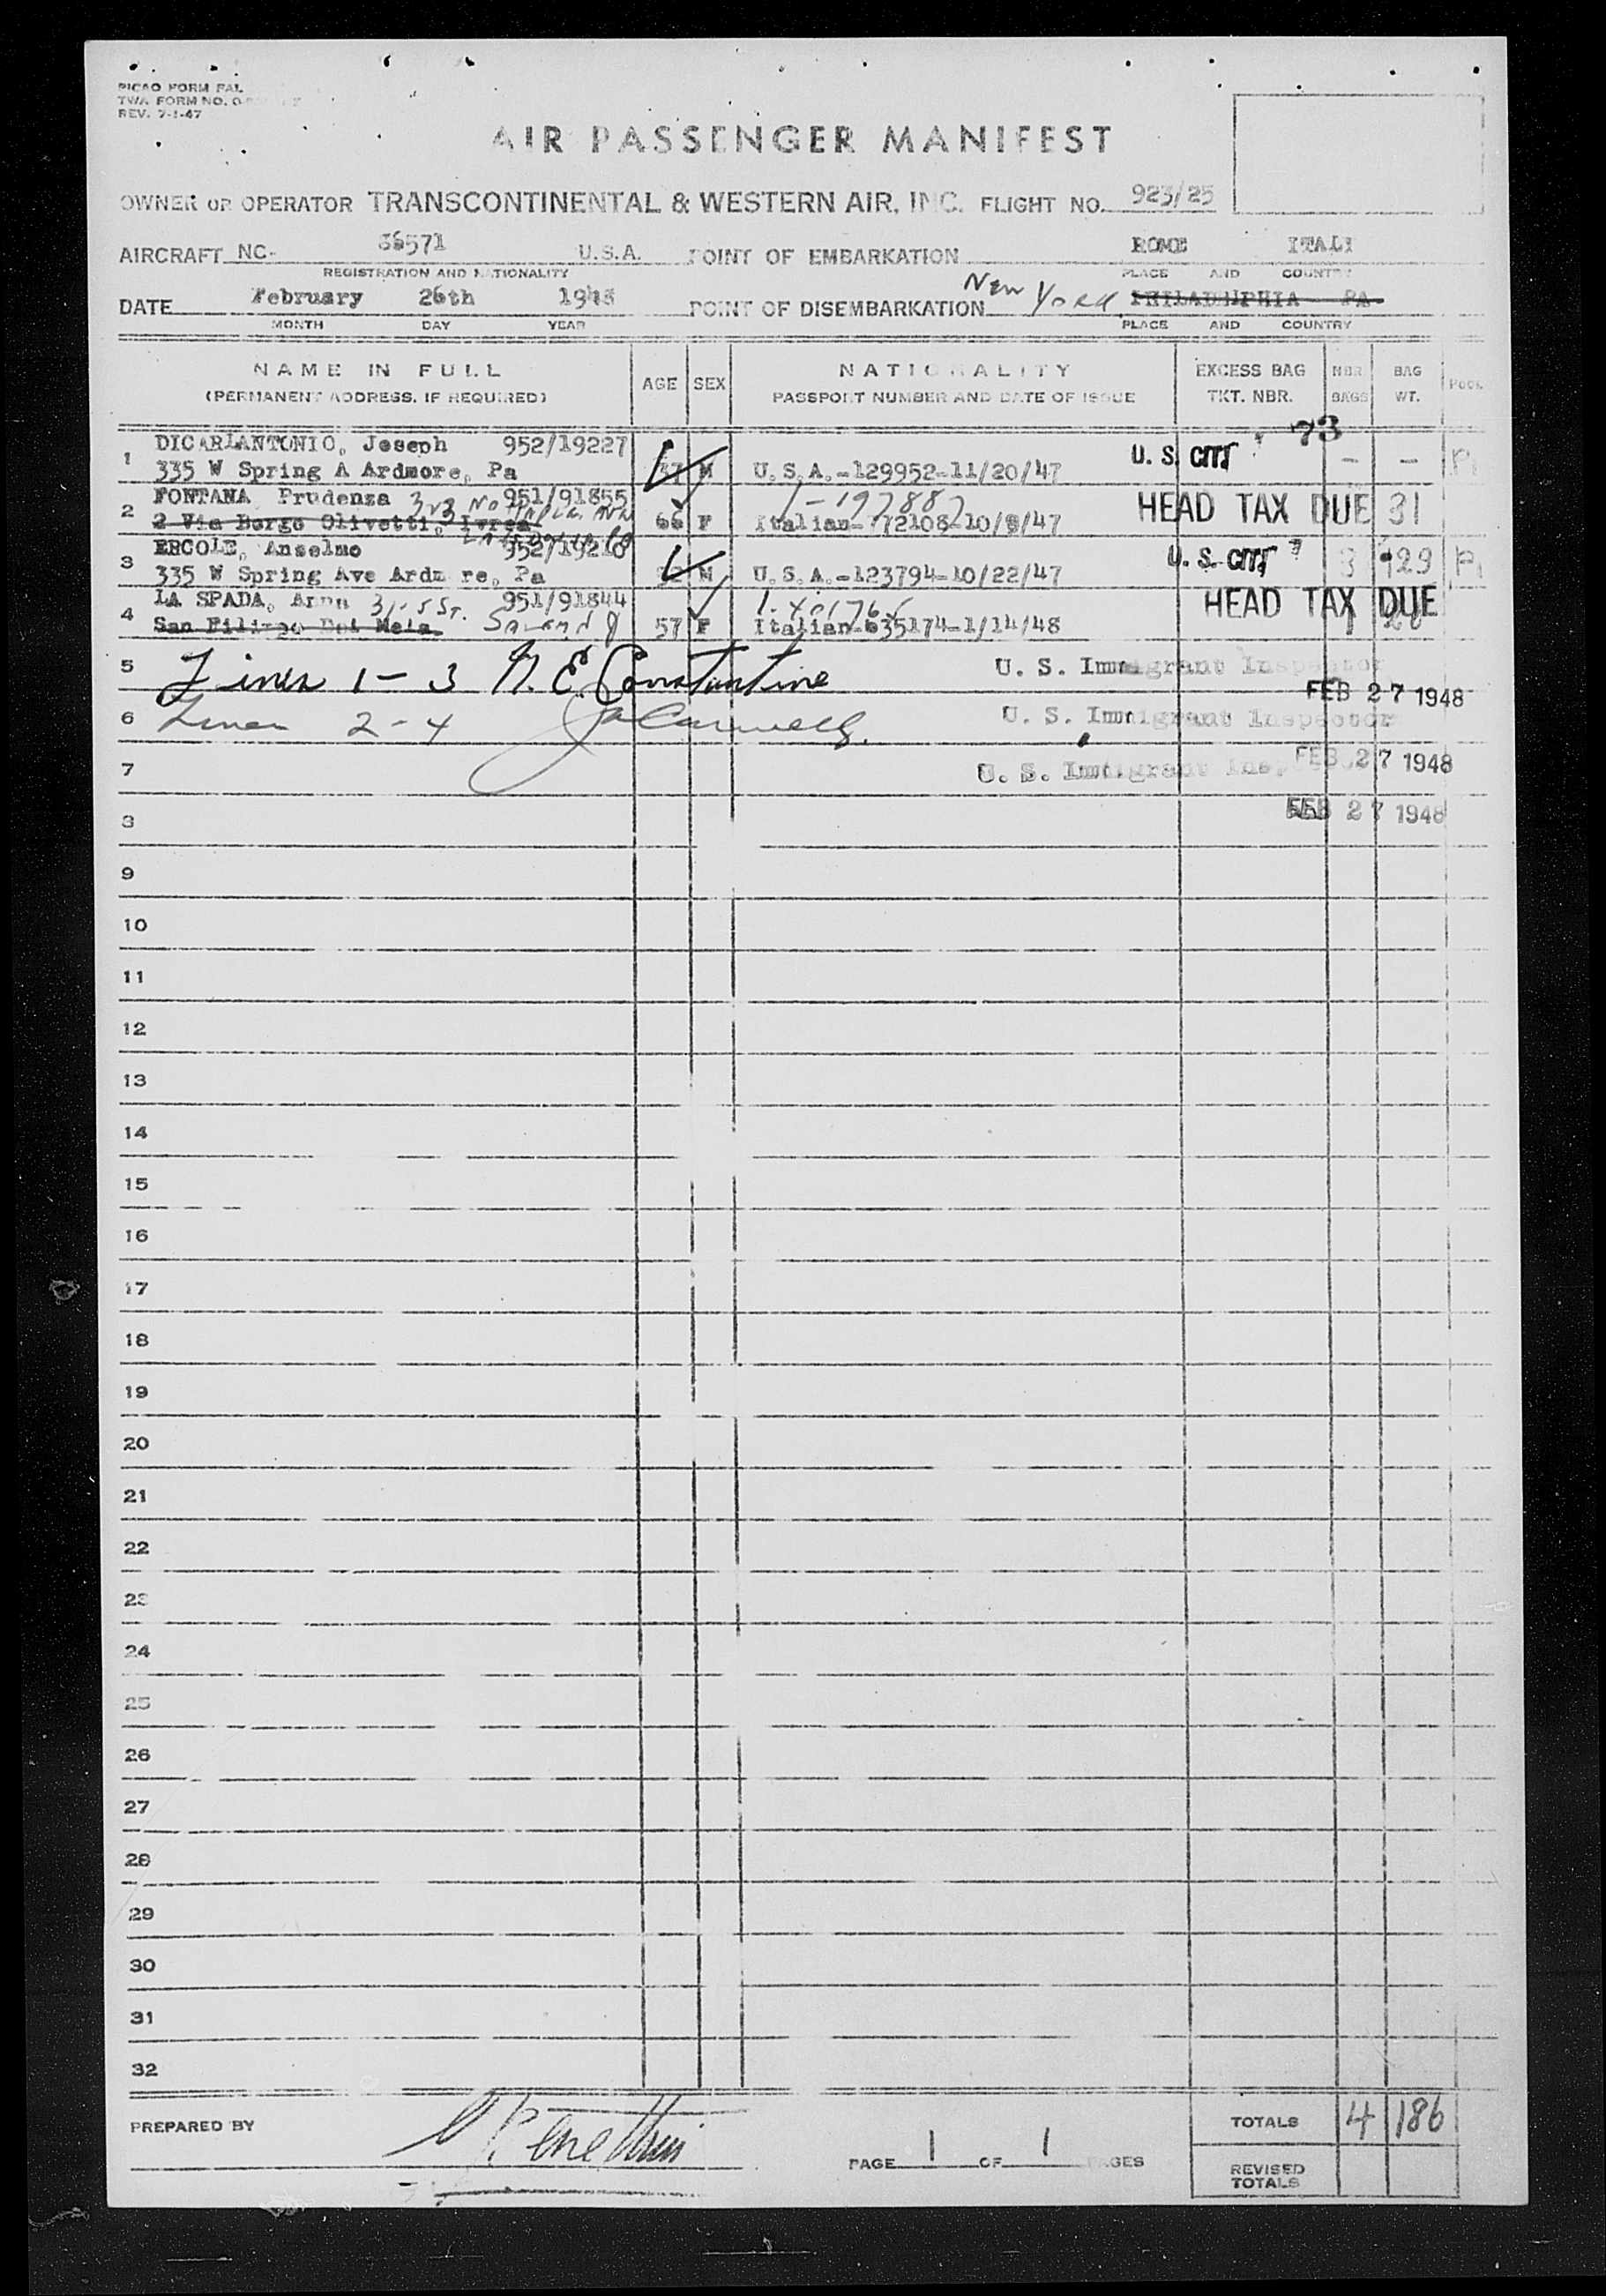 PICAO FORM FAL
TWA FORM NO.
REV. 7-1-47
AIR PASSENGER MANIFEST
OWNER OR OPERATOR TRANSCONTINENTAL & WESTERN AIR, INC. FLIGHT NO. 923/25
AIRCRAFT NC- 36571 U.S.A. POINT OF EMBARKATION ROME ITALY
REGISTRATION AND NATIONALITY PLACE AND COUNTRY
DATE February 26th 1948 POINT OF DISEMBARKATION New York PHILADELPHIA PA
MONTH DAY YEAR PLACE AND COUNTRY
NAME IN FULL AGE SEX NATIONALITY EXCESS BAG NBR BAG
(PERMANENT ADDRESS, IF REQUIRED) PASSPORT NUMBER AND DATE OF ISSUE TKT. NBR. BAGS WT.
73
1 DICARLANTONIO, Joseph 952/19227 U. S. CIT - -
335 W Spring A Ardmore, Pa 37 M U.S.A.-129952-11/20/47
2 FONTANA Prudenza 951/91855 1-197887 HEAD TAX DUE 31
2 Via Borgo Olivetti, Ivrea 66 F Italian-772108-10/9/47
3 ERCOLE, Anselmo 952/19218 U. S. CIT 3 129
335 W Spring Ave Ardm re, Pa M U.S.A.-123794-10/22/47
4 LA SPADA, Anna 31-5 ST. 951/91844 HEAD TAX DUE
San Filippo Del Mela 57 F Italian-635174-1/14/48
5 Lines 1-3 N. E. Constantine U. S. Immigrant Inspector
FEB 27 1948
6 Lines 2-4 U. S. Immigrant Inspector
7 U. S. Immigrant FEB 27 1948
8 FEB 27 1948
9
10
11
12
13
14
15
16
17
18
19
20
21
22
23
24
25
26
27
28
29
30
31
32
PREPARED BY PAGE 1 OF 1 PAGES TOTALS 4 186
REVISED
TOTALS